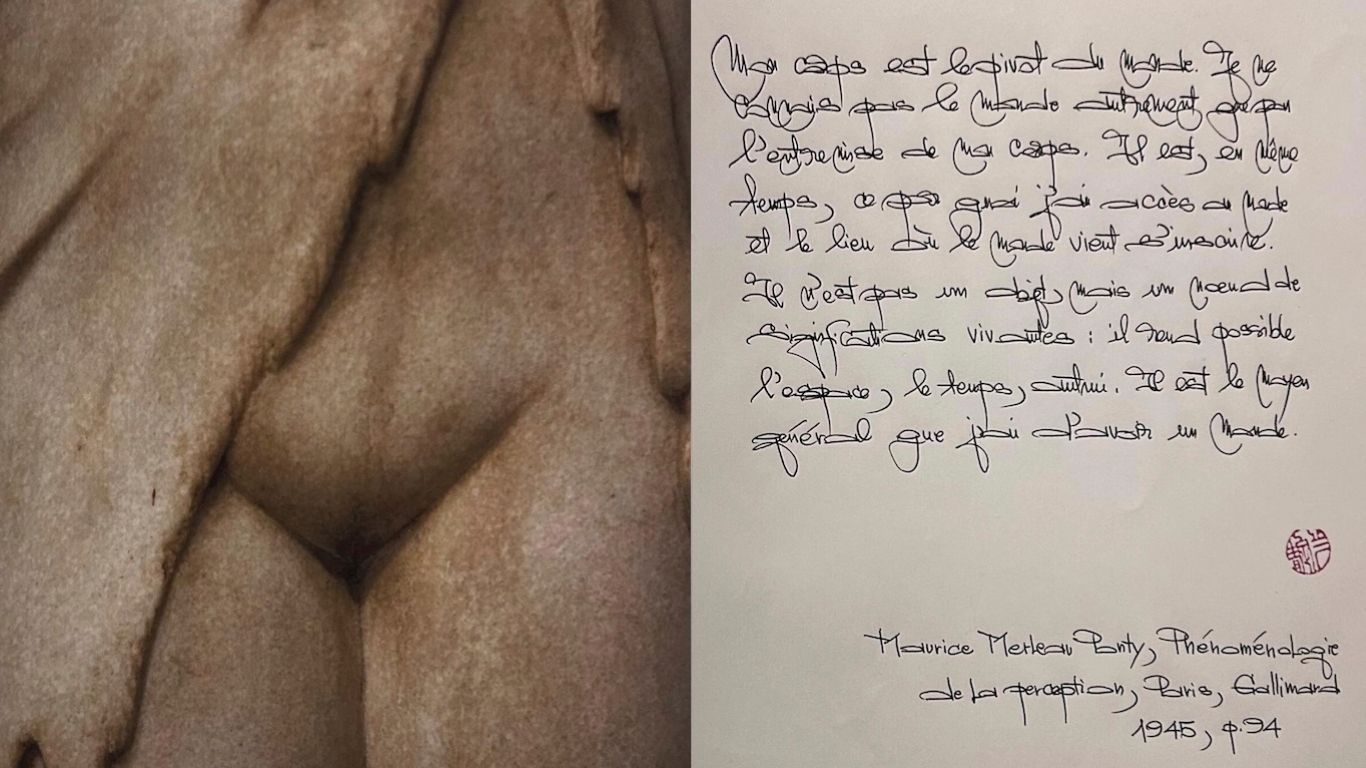 Mon corps est le pivot du monde. Je ne
connais pas le monde autrement que par
l'entremise de mon corps. Il est, en même
temps, ce par quoi j'ai accès au monde
et le lieu où le monde vient s'inscrire.
Il n'est pas un objet, mais un noeud de
significations vivantes : il rend possible
l'espace, le temps, autrui. Il est le moyen
général que j'ai d'avoir un monde.
Maurice Merleau Ponty, Phénoménologie
de la perception, Paris, Gallimard
1945, p.94